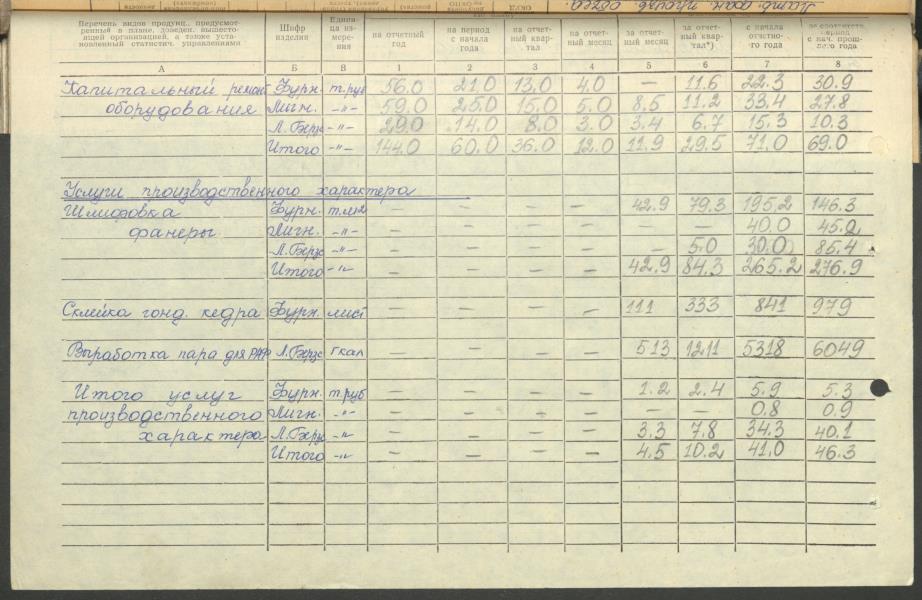 Перечень видов продукц., предусмот-
ренный в плане, доведен. вышесто-
ящей организацией, а также уста-
новленный статистич. управлениями
Шифр изделия
Едини-
ца из-
мере-
ния
на отчетный год
на период с начала года
на отчет-
ный квар-
тал
на отчет-
ный месяц
за отчет-
ный месяц
за отчет-
ный квар-
тал*)
с начала
отчетно-
го года
за соответств.
период
с нач. прош-
лого года
А Б В 1 2 3 4 5 6 7 8
Капитальный ремонт Бурн. т.руб 56.0 21.0 13.0 4.0 — 11.6 22.3 30.9
оборудования Лигн. -"- 59.0 25.0 15.0 5.0 8.5 11.2 33.4 27.8
Л.Бэрзс -"- 29.0 14.0 8.0 3.0 3.4 6.7 15.3 10.3
Итого -"- 144.0 60.0 36.0 12.0 11.9 29.5 71.0 69.0
Услуги производственного характера
Шлифовка Бурн. т.м2 — — — — 42.9 79.3 195.2 146.3
фанеры Лигн. -"- — — — — — — 40.0 45.2
Л.Бэрзс -"- — — — — 5.0 30.0 85.4
Итого -"- — — — — 42.9 84.3 265.2 276.9
Склейка гонд. кедра Бурн. лист — — — — 111 333 841 979
Выработка пара для Л.Бэрзс Гкал — — — — 513 1211 5318 6049
Итого услуг Бурн. т.руб — — — — 1.2 2.4 5.9 5.3
производственного Лигн. -"- — — — — — — 0.8 0.9
характера Л.Бэрзс -"- — — — — 3.3 7.8 34.3 40.1
Итого -"- — — — — 4.5 10.2 41.0 46.3